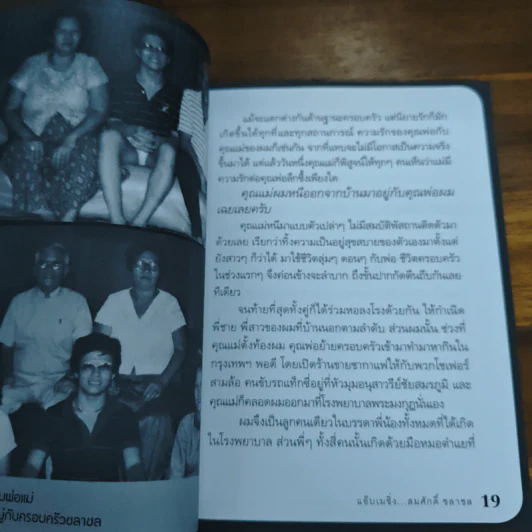 มพ่อแม่
ยู่กับครอบครัวชลาชล
แม้จะแตกต่างกันด้านฐานะครอบครัว แต่นิยายรักก็มัก
เกิดขึ้นได้ทุกที่และทุกสถานการณ์ ความรักของคุณพ่อกับ
คุณแม่ของผมก็เช่นกัน จากที่แทบจะไม่มีโอกาสเป็นความจริง
ขึ้นมาได้ แต่แล้ววันหนึ่งคุณแม่ก็พิสูจน์ให้ทุกๆ คนเห็นว่าแม่มี
ความรักต่อคุณพ่อลึกซึ้งเพียงใด
คุณแม่ผมหนีออกจากบ้านมาอยู่กับคุณพ่อผม
เฉยเลยครับ
คุณแม่หนีมาแบบตัวเปล่าๆ ไม่มีสมบัติพัสถานติดตัวมา
ด้วยเลย เรียกว่าทิ้งความเป็นอยู่สุขสบายของตัวเองมาตั้งแต่
ยังสาวๆ ก็ว่าได้ มาใช้ชีวิตลุ่มๆ ดอนๆ กับพ่อ ชีวิตครอบครัว
ในช่วงแรกๆ จึงค่อนข้างจะลำบาก ถึงขั้นปากกัดตีนถีบกันเลย
ทีเดียว
จนท้ายที่สุดทั้งคู่ก็ได้ร่วมหอลงโรงด้วยกัน ให้กำเนิด
พี่ชาย พี่สาวของผมที่บ้านนอกตามลำดับ ส่วนผมนั้น ช่วงที่
คุณแม่ตั้งท้องผม คุณพ่อย้ายครอบครัวเข้ามาทำมาหากินใน
กรุงเทพฯ พอดี โดยเปิดร้านขายกาแฟให้กับพวกโชเฟอร์
สามล้อ คนขับรถแท็กซี่อยู่ที่หัวมุมอนุสาวรีย์ชัยสมรภูมิ และ
คุณแม่ก็คลอดผมออกมาที่โรงพยาบาลพระมงกุฎนั่นเอง
ผมจึงเป็นลูกคนเดียวในบรรดาพี่น้องทั้งหมดที่ได้เกิด
ในโรงพยาบาล ส่วนพี่ๆ ทั้งสี่คนนั้นเกิดด้วยมือหมอตำแยที่
แฮ็บเมซิ่ง...สมศักดิ์ ชลาชล 19